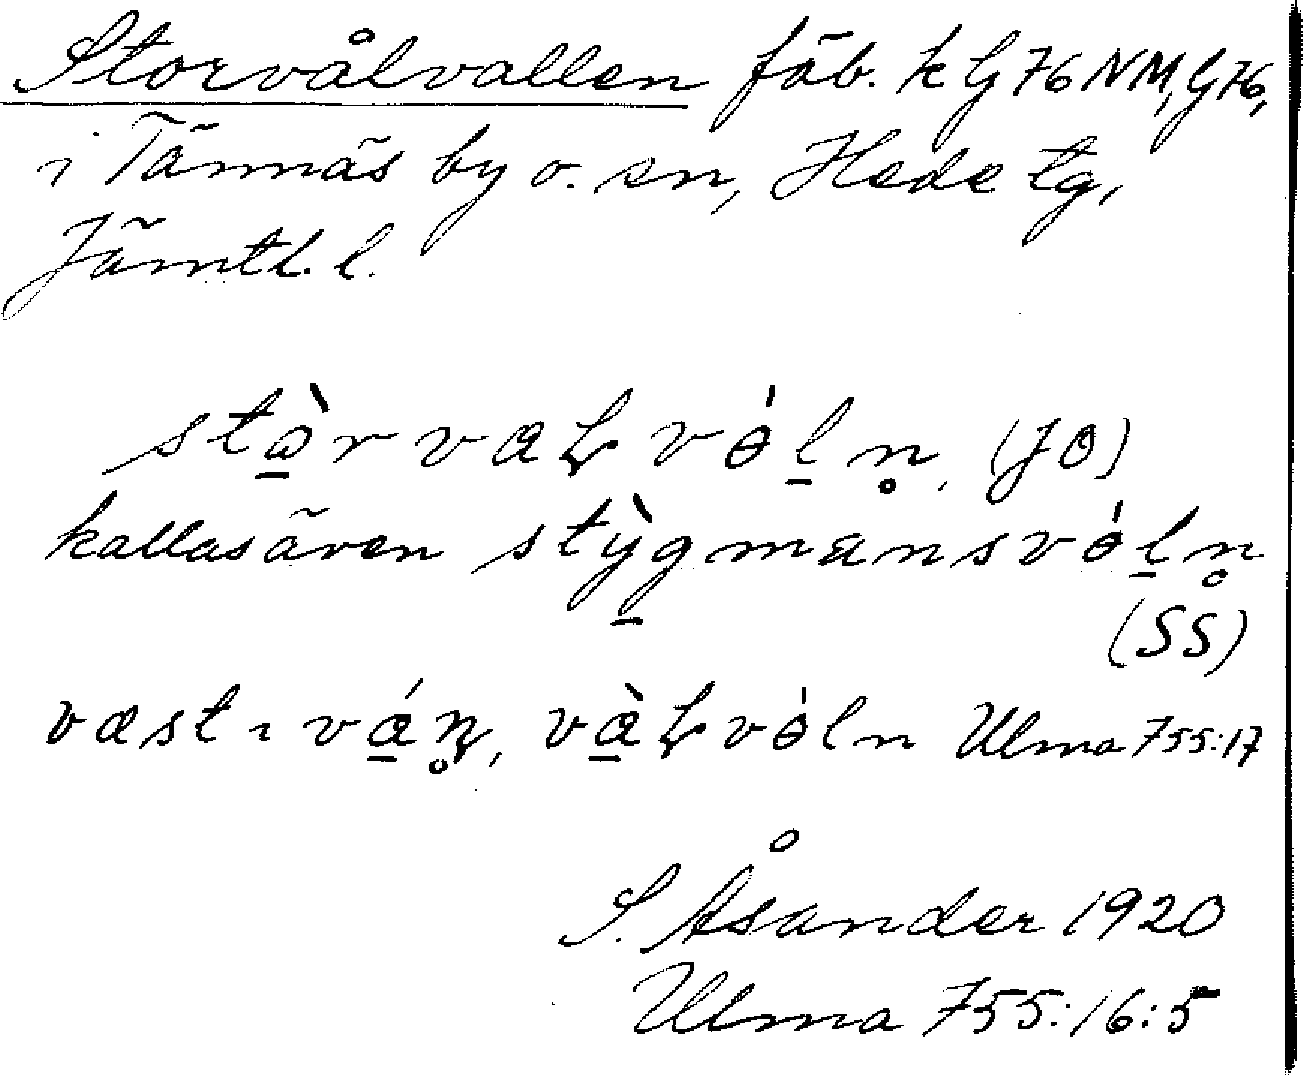 Storvålvallen fäb. k G 76 NM, G 76,
i Tännäs by o. sn, Hede tg,
Jämtl. l.
stàrvaɽvóln, (JO)
kallas även stỳgmansvóln
(SS)
væst i váṇ, vàɽvóln Ulma 755:17
S. Åsander 1920
Ulma 755:16:5